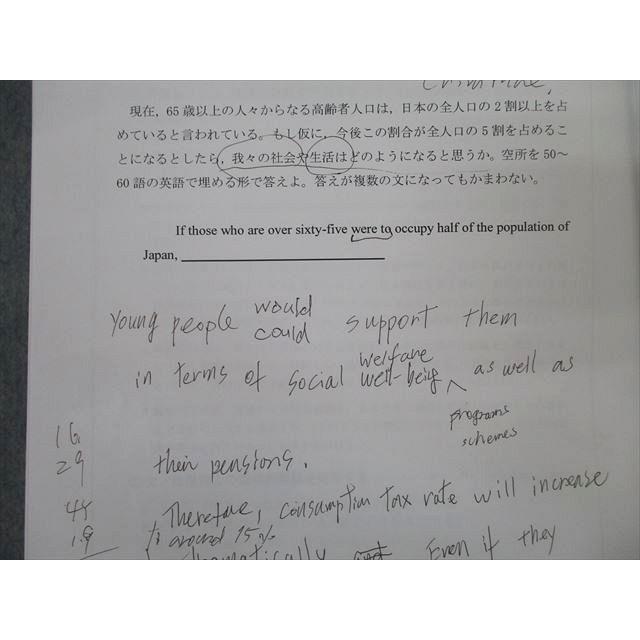 現在，65歳以上の人々からなる高齢者人口は，日本の全人口の2割以上を占
めていると言われている。もし仮に，今後この割合が全人口の5割を占めるこ
とになるとしたら，我々の社会や生活はどのようになると思うか。空所を50～
60語の英語で埋める形で答えよ。答えが複数の文になってもかまわない。
If those who are over sixty-five were to occupy half of the population of
Japan,
would
Young people could support them
welfare
in terms of social well-being as well as
programs
schemes
16
29 their pensions.
48 Therefore, consumption tax rate will increase
19 to around 15%
Even if they